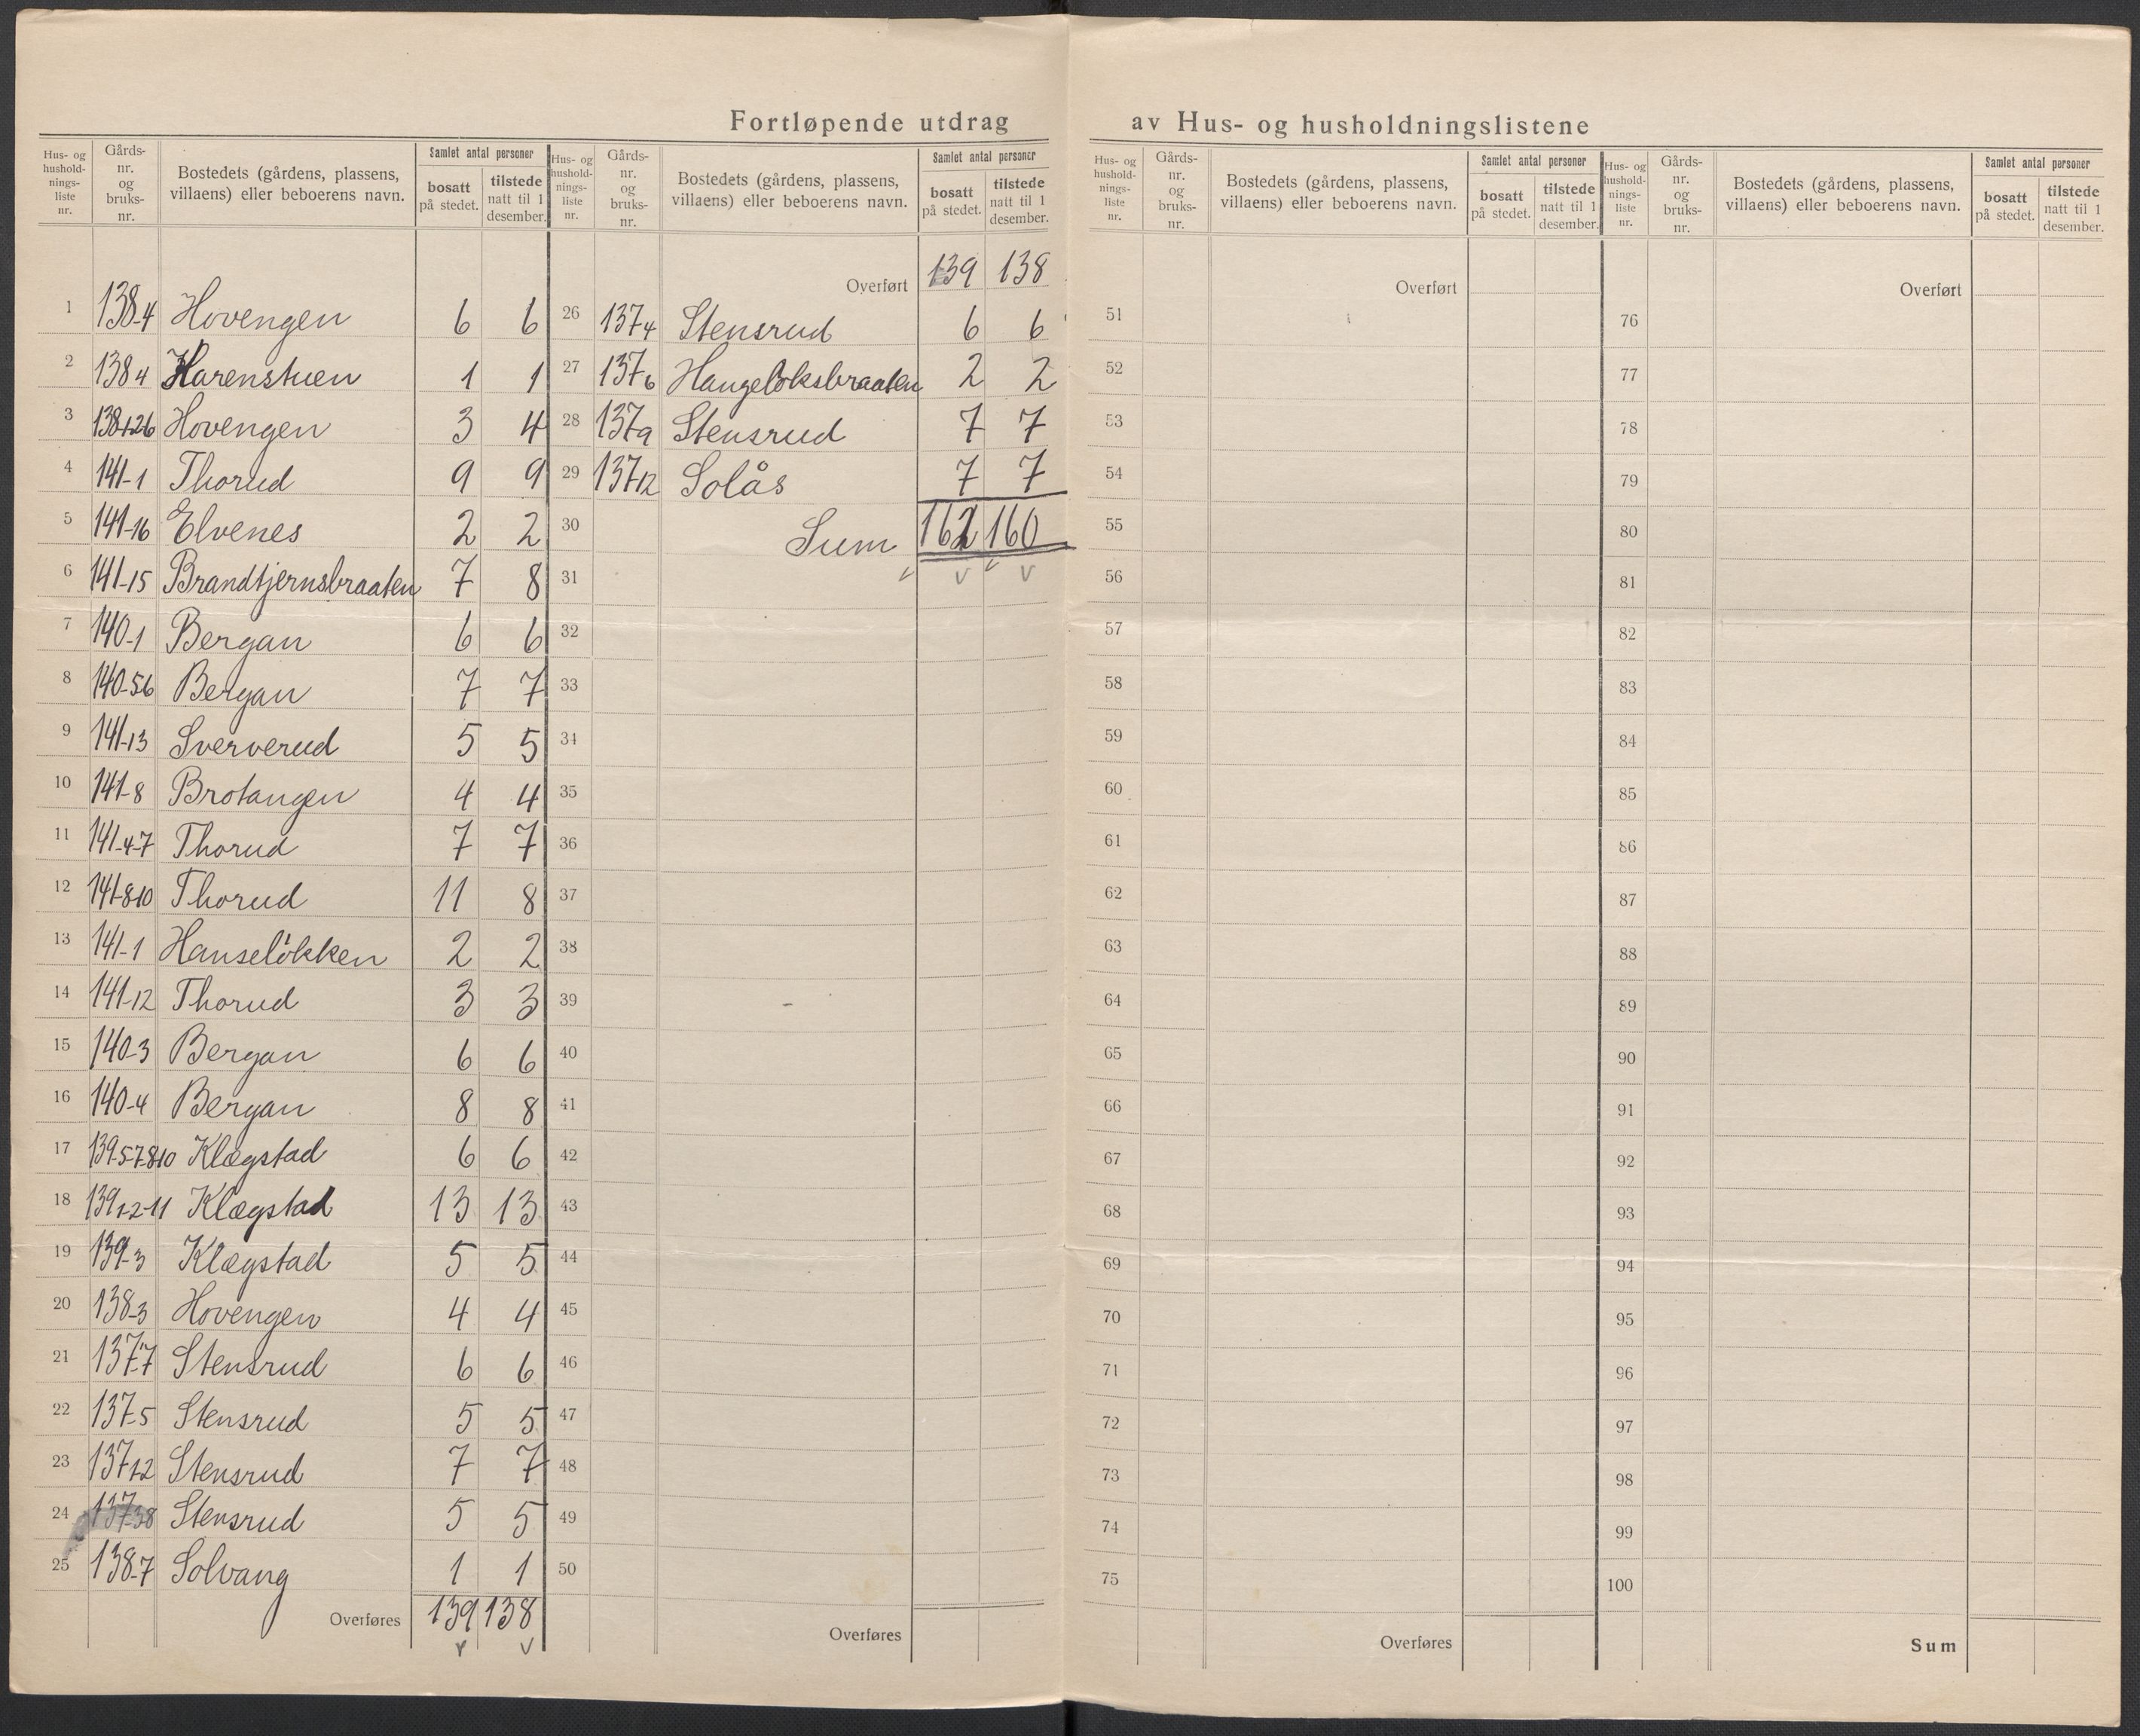 Fortløpende utdrag av Hus- og husholdningslistene
Hus- og hushold-nings-liste nr. Gårds-nr. og bruks-nr. Bostedets (gårdens, plassens, villaens) eller beboerens navn. Samlet antal personer bosatt på stedet. tilstede natt til 1 desember.
1 138-4 Hovengen 6 6
2 138 4 Harenstuen 1 1
3 138-1-26 Hovengen 3 4
4 141-1 Thorud 9 9
5 141-16 Elvenes 2 2
6 141-15 Brandtjernsbraaten 7 8
7 140-1 Bergan 6 6
8 140-56 Bergan 7 7
9 141-13 Sververud 5 5
10 141-8 Brotangen 4 4
11 141-4-7 Thorud 7 7
12 141-8-10 Thorud 11 8
13 141-1 Hanseløkken 2 2
14 141-12 Thorud 3 3
15 140-3 Bergan 6 6
16 140-4 Bergan 8 8
17 139-5-7-8-10 Klægstad 6 6
18 139 1-2-11 Klægstad 13 13
19 139-3 Klægstad 5 5
20 138-3 Hovengen 4 4
21 137-7 Stensrud 6 6
22 137-5 Stensrud 5 5
23 137-12 Stensrud 7 7
24 137-38 Stensrud 5 5
25 138-7 Solvang 1 1
Overføres 139 138
Hus- og hushold-nings-liste nr. Gårds-nr. og bruks-nr. Bostedets (gårdens, plassens, villaens) eller beboerens navn. Samlet antal personer bosatt på stedet. tilstede natt til 1 desember.
Overført 139 138
26 137 4 Stensrud 6 6
27 137 6 Haugeløksbraaten 2 2
28 137 9 Stensrud 7 7
29 137 12 Solås 7 7
30 Sum 162 160
31
32
33
34
35
36
37
38
39
40
41
42
43
44
45
46
47
48
49
50
Overføres
Hus- og hushold-nings-liste nr. Gårds-nr. og bruks-nr. Bostedets (gårdens, plassens, villaens) eller beboerens navn. Samlet antal personer bosatt på stedet. tilstede natt til 1 desember.
Overført
51
52
53
54
55
56
57
58
59
60
61
62
63
64
65
66
67
68
69
70
71
72
73
74
75
Overføres
Hus- og hushold-nings-liste nr. Gårds-nr. og bruks-nr. Bostedets (gårdens, plassens, villaens) eller beboerens navn. Samlet antal personer bosatt på stedet. tilstede natt til 1 desember.
Overført
76
77
78
79
80
81
82
83
84
85
86
87
88
89
90
91
92
93
94
95
96
97
98
99
100
Sum